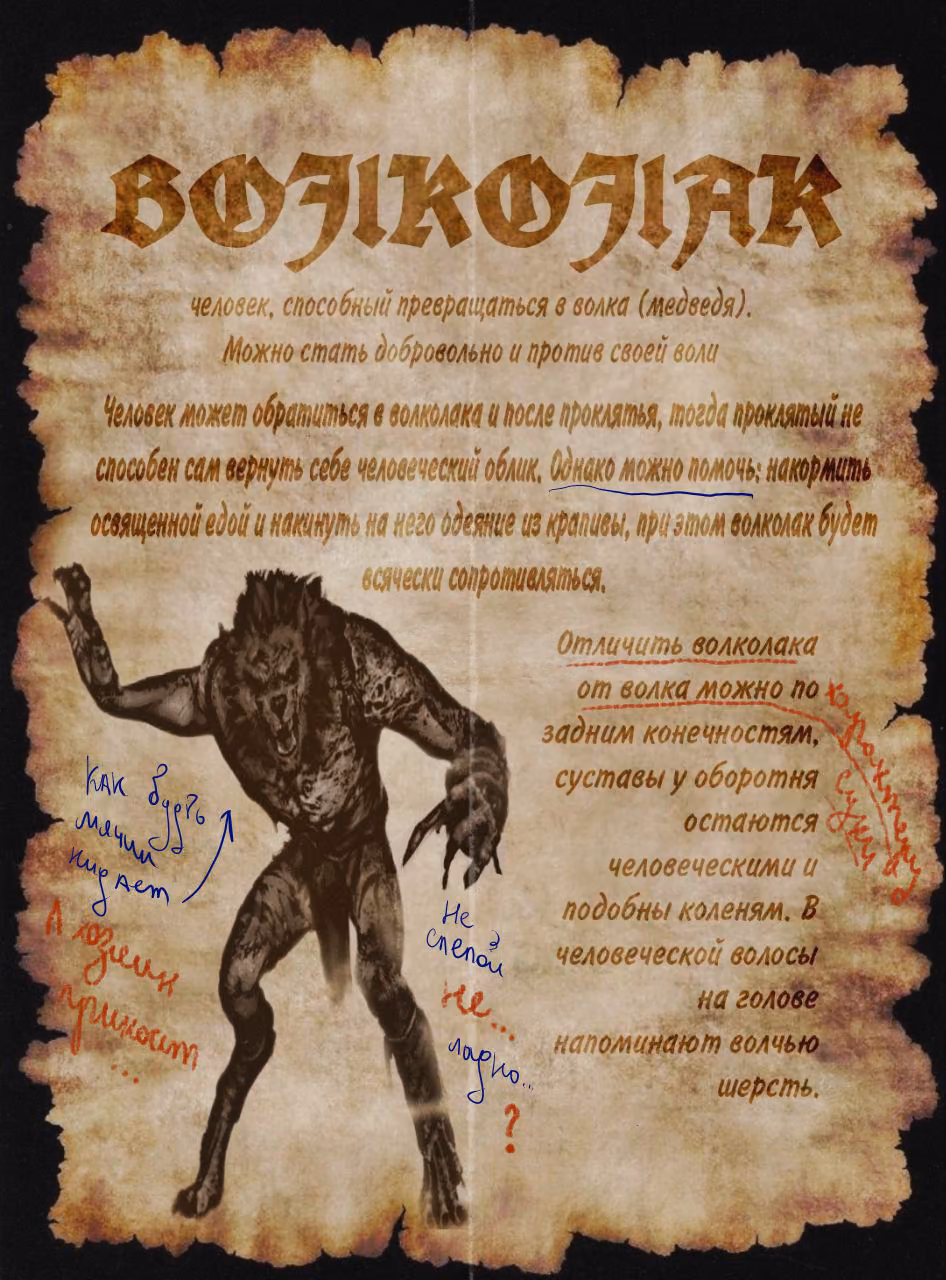 ВОЛКОЛАК
человек, способный превращаться в волка (медведя).
Можно стать добровольно и против своей воли
Человек может обратиться в волколака и после проклятья, тогда проклятый не
способен сам вернуть себе человеческий облик. Однако можно помочь: накормить
освященной едой и накинуть на него одеяние из крапивы, при этом волколак будет
всячески сопротивляться.
Отличить волколака
от волка можно по
задним конечностям,
суставы у оборотня
остаются
человеческими и
подобны коленям. В
человеческой волосы
на голове
напоминают волчью
шерсть.
по характеру
суки
как будть
мячик
кидает
А
приносит
...
Не
слепой
не...
ладно...
?